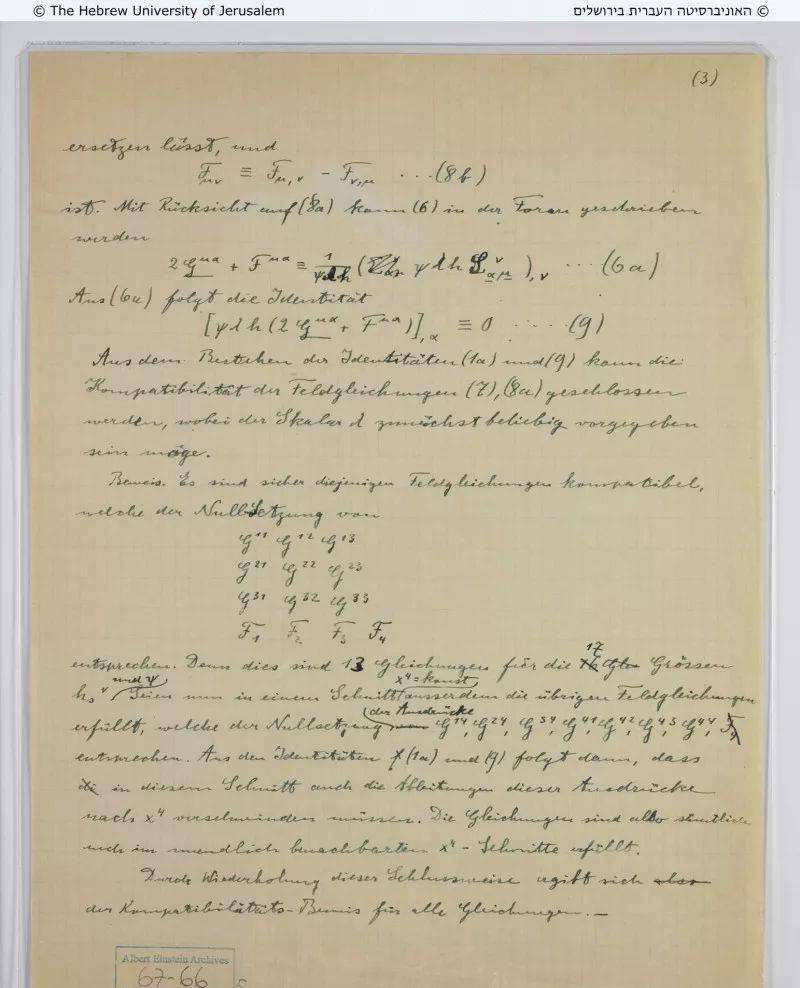 © The Hebrew University of Jerusalem
© האוניברסיטה העברית בירושלים
(3)
ersetzen lässt, und
F_μν ≡ F_μ,ν − F_ν,μ · · · (8b)
ist. Mit Rücksicht auf (8a) kann (6) in der Form geschrieben
werden
2 G^μα + F^μα ≡ 1/ψλh ( ψλh L_αμ^ν ),ν · · · (6a)
Aus (6a) folgt die Identität
[ψλh (2 G^μα + F^μα)],α ≡ 0 · · · · (9)
Aus dem Bestehen der Identitäten (1a) und (9) kann die
Kompatibilität der Feldgleichungen (7), (8a) geschlossen
werden, wobei der Skalar λ zunächst beliebig vorgegeben
sein möge.
Beweis. Es sind sicher diejenigen Feldgleichungen kompatibel,
welche der Nullsetzung von
G^11 G^12 G^13
G^21 G^22 G^23
G^31 G^32 G^33
F_1 F_2 F_3 F_4
17
entsprechen. Denn dies sind 13 Gleichungen für die Grössen
und ψ x^4 = konst
h_s^ν. Seien nun in einem Schnitt ausserdem die übrigen Feldgleichungen
der Ausdrücke
erfüllt, welche der Nullsetzung G^14, G^24, G^34, G^41, G^42, G^43, G^44,
entsprechen. Aus den Identitäten (1a) und (9) folgt dann, dass
in diesem Schnitt auch die Ableitungen dieser Ausdrücke
nach x^4 verschwinden müssen. Die Gleichungen sind also sämtlich
auch im unendlich benachbarten x^4 - Schnitte erfüllt.
Durch Wiederholung dieser Schlussweise ergibt sich
der Kompatibilitäts-Beweis für alle Gleichungen. —
Albert Einstein Archives
67-66